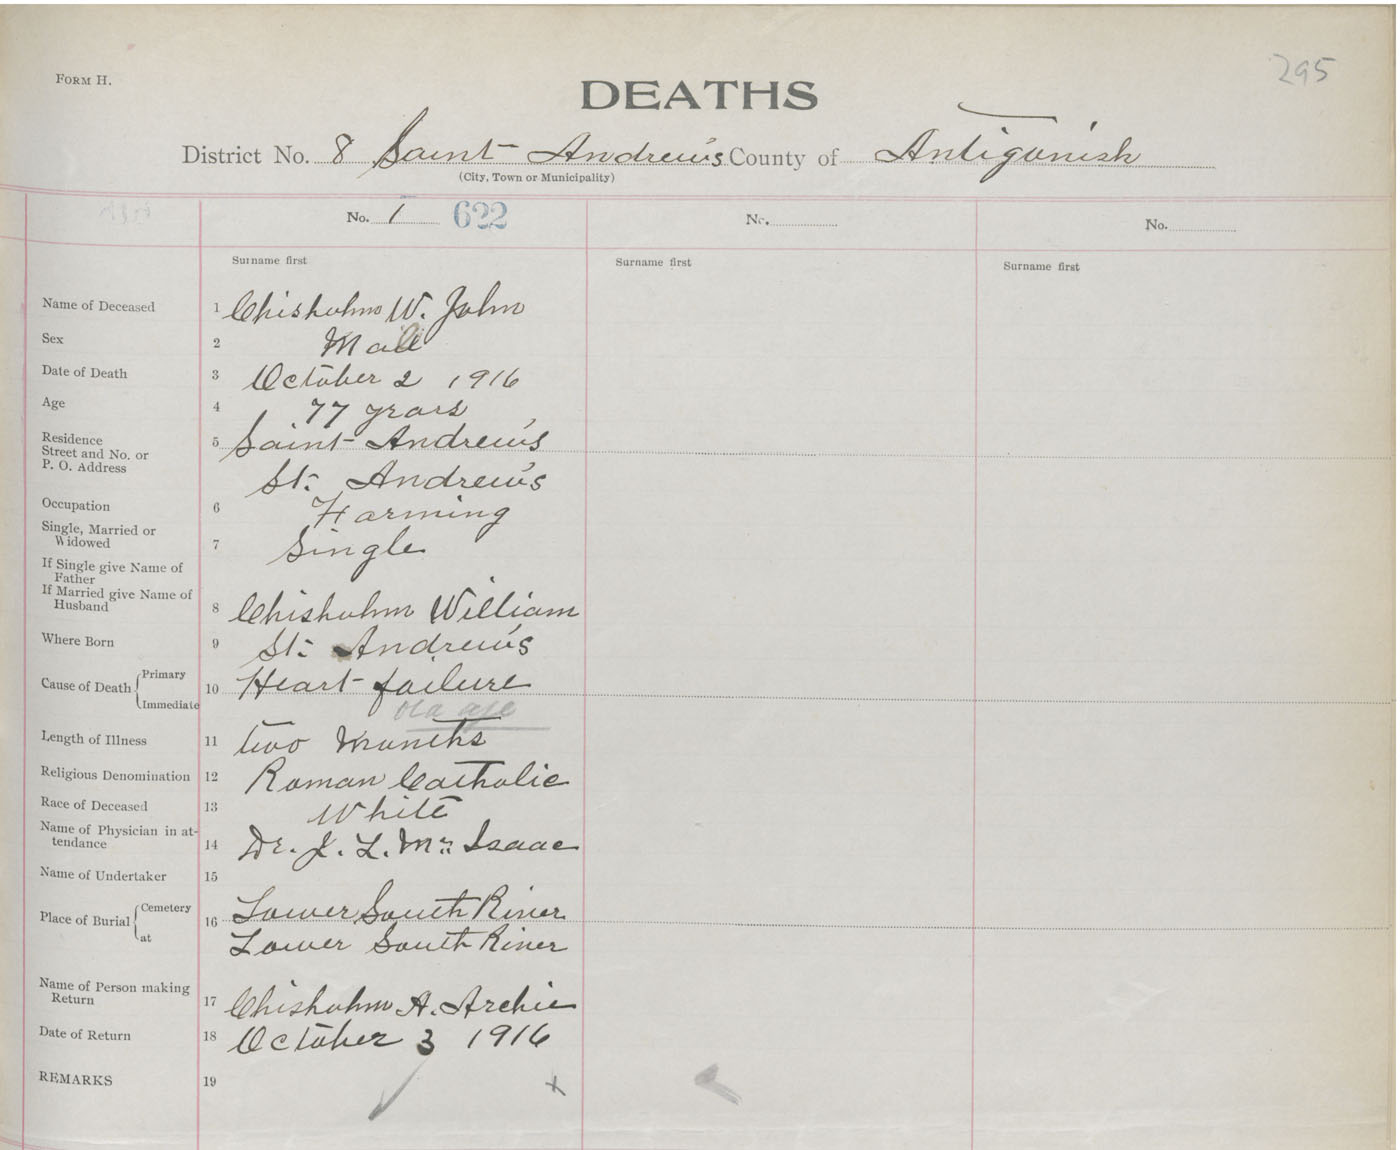 295
FORM H.
DEATHS
District No. 8 Saint Andrew's County of Antigonish
(City, Town or Municipality)
No. 1 622 No. No.
Surname first Surname first Surname first
Name of Deceased 1 Chisholm W. John
Sex 2 Male
Date of Death 3 October 2 1916
Age 4 77 years
Residence 5 Saint Andrew's
Street and No. or
P. O. Address
St. Andrew's
Occupation 6 Farming
Single, Married or
Widowed 7 Single
If Single give Name of
Father
If Married give Name of
Husband 8 Chisholm William
Where Born 9 St. Andrew's
Cause of Death Primary 10 Heart failure
Immediate old age
Length of Illness 11 two months
Religious Denomination 12 Roman Catholic
Race of Deceased 13 White
Name of Physician in at-
tendance 14 Dr. J. L. Mc Isaac
Name of Undertaker 15
Place of Burial Cemetery 16 Lower South River
at Lower South River
Name of Person making
Return 17 Chisholm A. Archie
Date of Return 18 October 3 1916
REMARKS 19